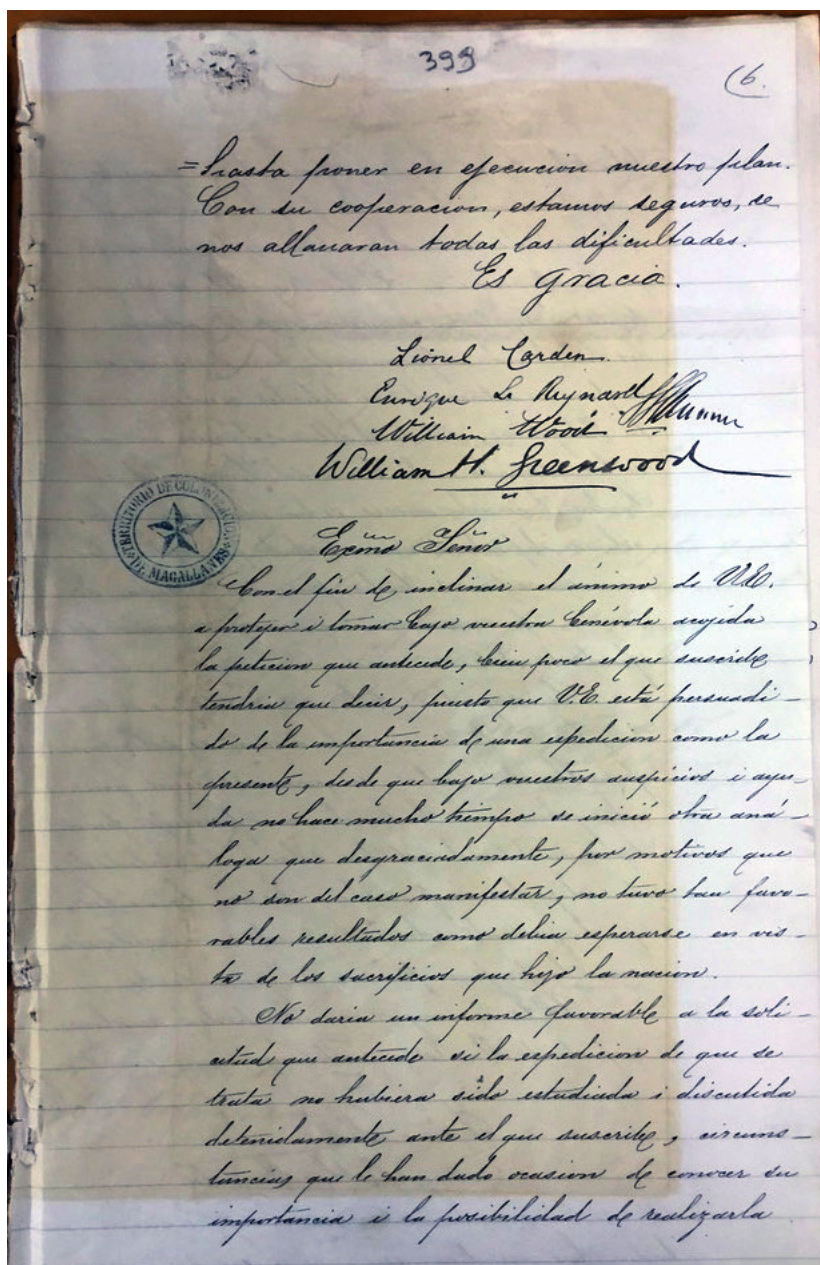 399
(6.
=hasta poner en ejecucion nuestro plan.
Con su cooperacion, estamos seguros, se
nos allanaran todas las dificultades.
Es gracia.
Lionel Carden.
Enrique L. Reynard
William Wood
William H. Greenwood
TERRITORIO DE COLONIZACION
DE MAGALLANES
Exmo Señor
Con el fin de inclinar el ánimo de V.E.
a protejer i tomar bajo vuestra benévola acojida
la peticion que antecede, bien poco el que suscribe
tendria que decir, puesto que V.E. está persuadi-
do de la importancia de una espedicion como la
presente, desde que bajo vuestros auspicios i ayu-
da no hace mucho tiempo se inició otra aná-
loga que desgraciadamente, por motivos que
no son del caso manifestar, no tuvo tan favo-
rables resultados como debia esperarse en vis-
ta de los sacrificios que hizo la nacion.
No daria un informe favorable a la soli-
citud que antecede si la espedicion de que se
trata no hubiera sido estudiada i discutida
detenidamente ante el que suscribe, circuns-
tancias que le han dado ocasion de conocer su
importancia i la posibilidad de realizarla